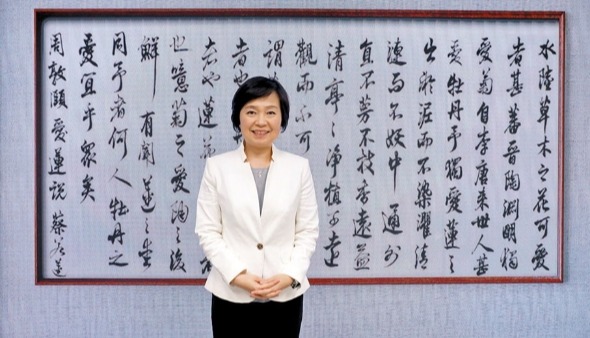 水陸草木之花可愛
者甚蕃晉陶淵明獨
愛菊自李唐來世人甚
愛牡丹予獨愛蓮之
出淤泥而不染濯清
漣而不妖中通外
直不蔓不枝香遠益
清亭亭淨植可遠
觀而不可
謂
者也
者也蓮
也噫菊之愛陶之後
鮮有聞蓮之愛
同予者何人牡丹之
愛宜乎眾矣
周敦頤愛蓮說 蔡若蓮